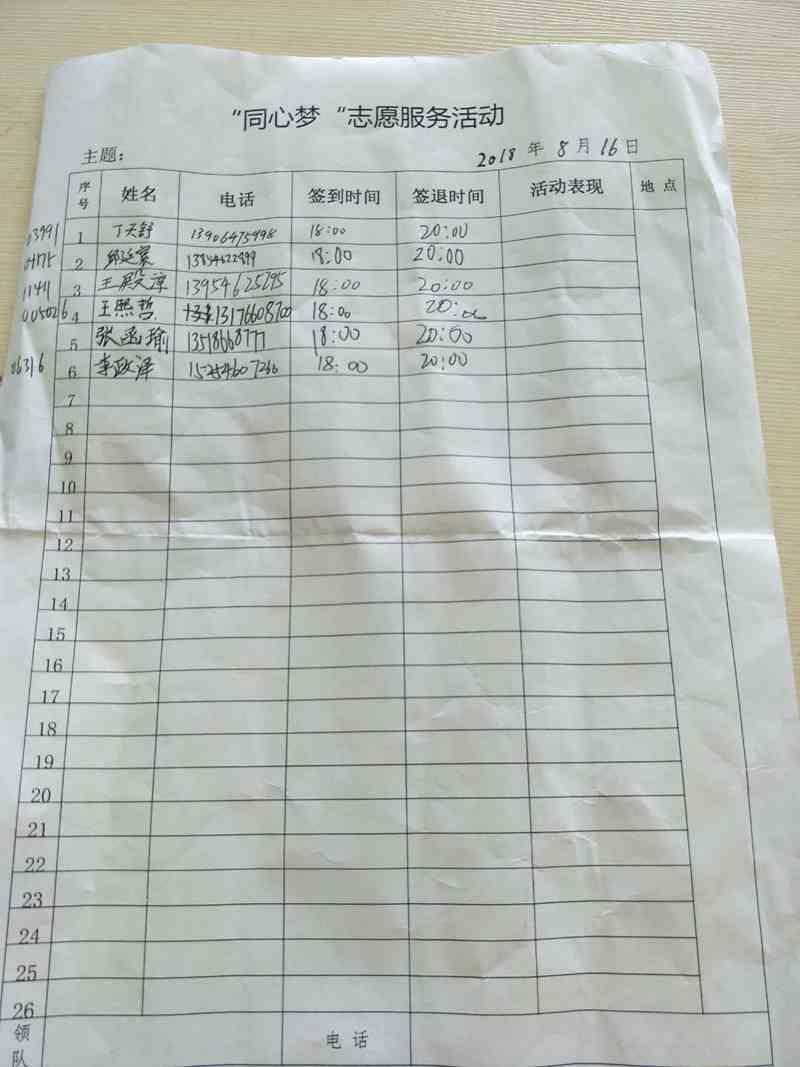 “同心梦“志愿服务活动
主题： 2018 年 8 月 16 日
序号 姓名 电话 签到时间 签退时间 活动表现 地点
1 丁天舒 13906475998 18:00 20:00
2 18:00 20:00
11411 3 王殿淳 13954625295 18:00 20:00
005026 4 王熙哲 13176608700 18:00 20:00
5 张函瑜 18:00 20:00
06316 6 李政泽 15254607266 18:00 20:00
7
8
9
10
11
12
13
14
15
16
17
18
19
20
21
22
23
24
25
26
领队 电话